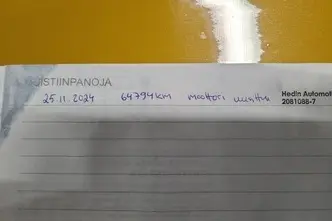 MUISTIINPANOJA
25.11.2024 64794km moottori uusittu
Hedin Automot
2081088-7